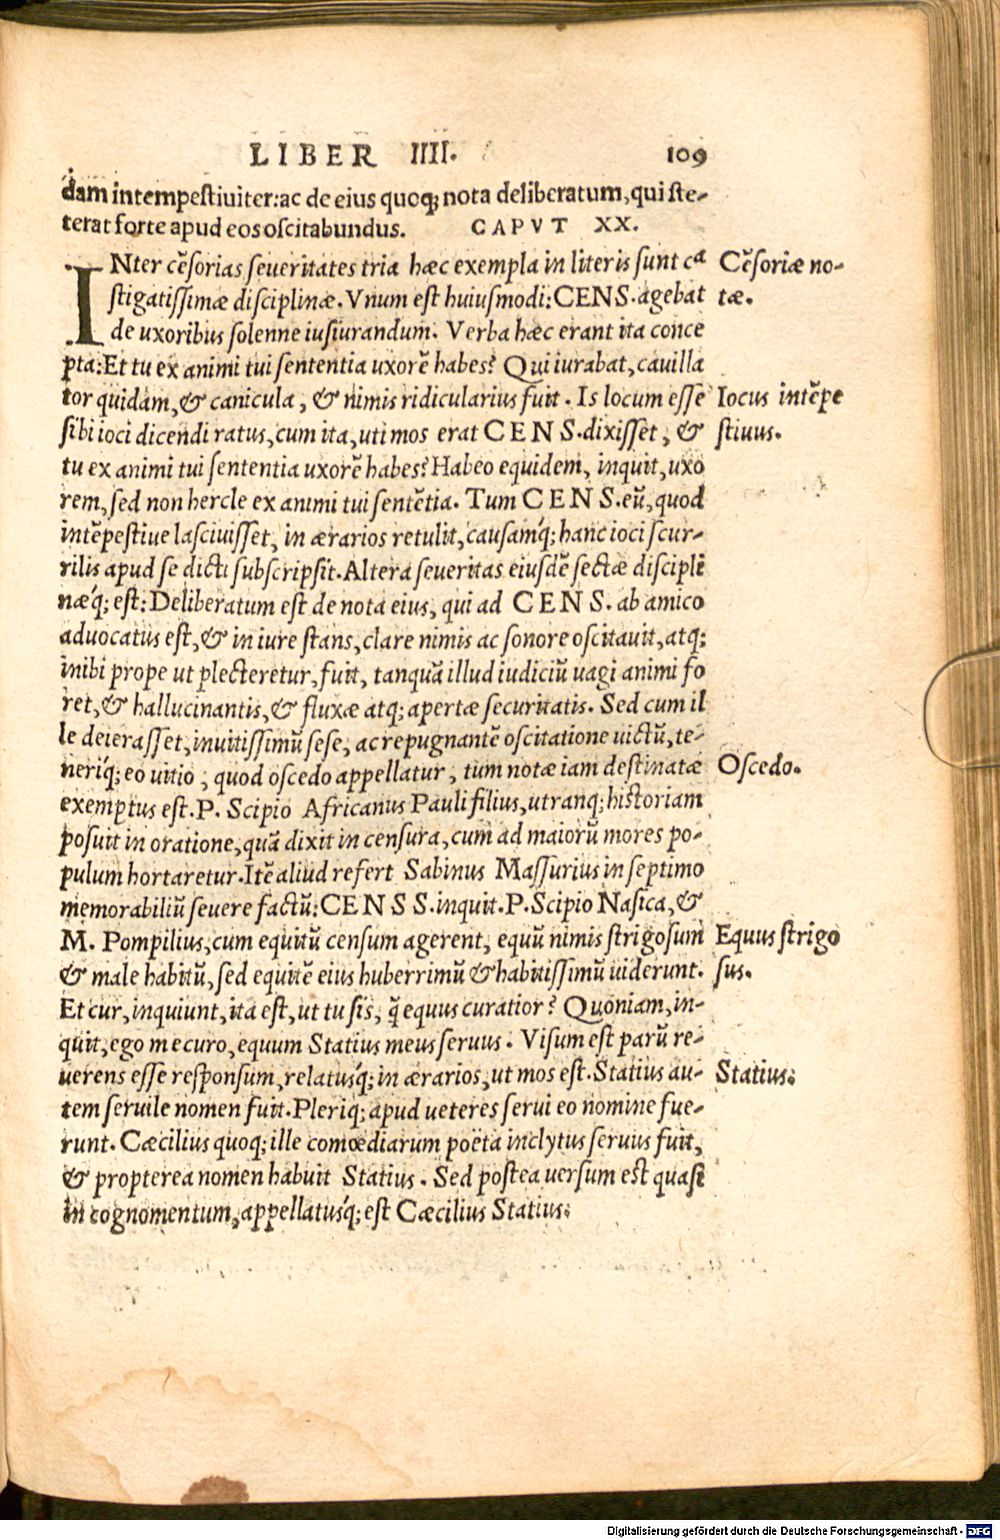 LIBER IIII. 109
dam intempestiuiter: ac de eius quoq; nota deliberatum, qui ste-
terat forte apud eos oscitabundus. CAPVT XX.
INter cẽsorias seueritates tria hæc exempla in literis sunt ca
Cẽsoriæ no-
stigatissimæ disciplinæ. Vnum est huiusmodi: CENS. agebat
tæ.
de uxoribus solenne iusiurandum. Verba hæc erant ita conce
pta: Et tu ex animi tui sententia uxorẽ habes? Qui iurabat, cauilla
tor quidam, & canicula, & nimis ridicularius fuit. Is locum esse
Iocus intẽpe
sibi ioci dicendi ratus, cum ita, uti mos erat CENS. dixisset, &
stiuus.
tu ex animi tui sententia uxorẽ habes? Habeo equidem, inquit, uxo
rem, sed non hercle ex animi tui sentẽtia. Tum CENS. eũ, quod
intẽpestiue lasciuisset, in ærarios retulit, causamq́; hanc ioci scur-
rilis apud se dicti subscripsit. Altera seueritas eiusdẽ sectæ discipli
næq́; est: Deliberatum est de nota eius, qui ad CENS. ab amico
aduocatus est, & in iure stans, clare nimis ac sonore oscitauit, atq;
inibi prope ut plecteretur, fuit, tanquã illud iudiciũ uagi animi fo
ret, & hallucinantis, & fluxæ atq; apertæ securitatis. Sed cum il
le deierasset, inuitissimũ sese, ac repugnantẽ oscitatione uictũ, te-
neriq́; eo uitio, quod oscedo appellatur, tum notæ iam destinatæ
Oscedo.
exemptus est. P. Scipio Africanus Pauli filius, utranq; historiam
posuit in oratione, quã dixit in censura, cum ad maiorũ mores po-
pulum hortaretur. Itẽ aliud refert Sabinus Massurius in septimo
memorabiliũ seuere factũ: CENSS. inquit. P. Scipio Nasica, &
M. Pompilius, cum equitũ censum agerent, equũ nimis strigosum
Equus strigo
& male habitũ, sed equitẽ eius huberrimũ & habitissimũ uiderunt.
sus.
Et cur, inquiunt, ita est, ut tu sis, q̃ equus curatior? Quoniam, in-
quit, ego me curo, equum Statius meus seruus. Visum est parũ re-
uerens esse responsum, relatusq́; in ærarios, ut mos est. Statius au-
Statius.
tem seruile nomen fuit. Pleriq; apud ueteres serui eo nomine fue-
runt. Cæcilius quoq; ille comœdiarum poëta inclytus seruus fuit,
& propterea nomen habuit Statius. Sed postea uersum est quasi
in cognomentum, appellatusq́; est Cæcilius Statius.
Digitalisierung gefördert durch die Deutsche Forschungsgemeinschaft - DFG